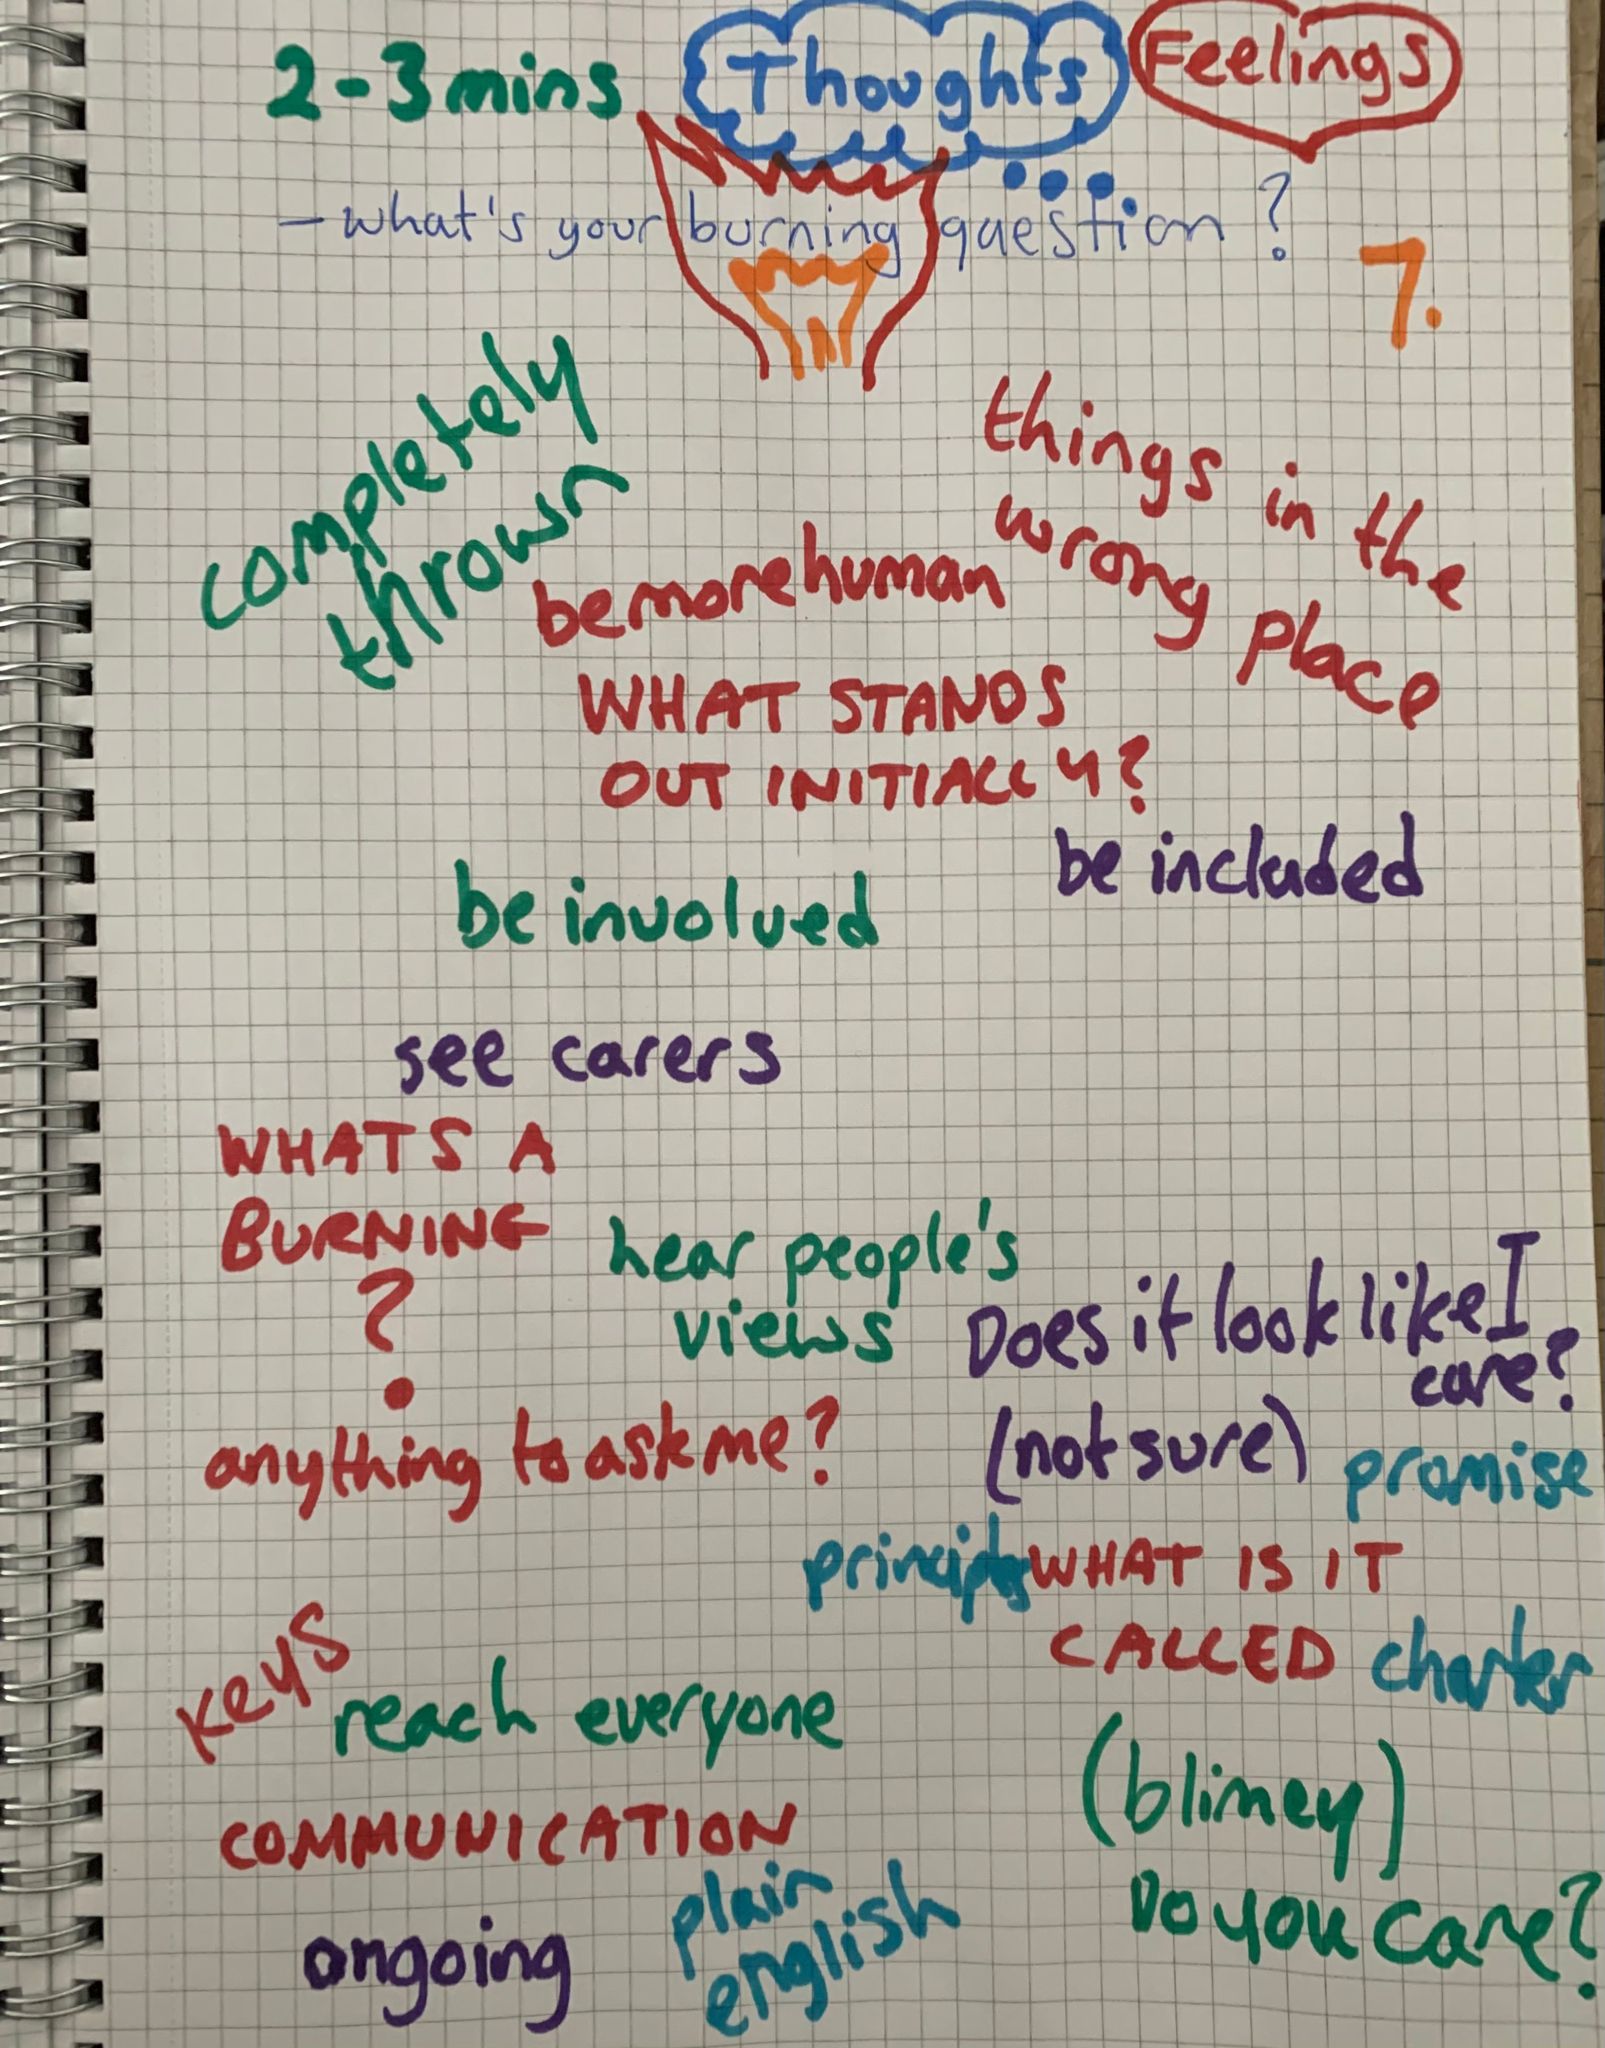 2-3 mins Thoughts Feelings
- what's your burning question?
7.
completely
thrown
things in the
wrong place
be more human
WHAT STANDS
OUT INITIALLY?
be included
be involved
see carers
WHATS A
BURNING
?
hear people's
views
Does it look like I
care?
(not sure)
anything to ask me?
promise
principles
WHAT IS IT
CALLED
charter
keys
reach everyone
(blimey)
Do you care?
COMMUNICATION
ongoing
plain
english